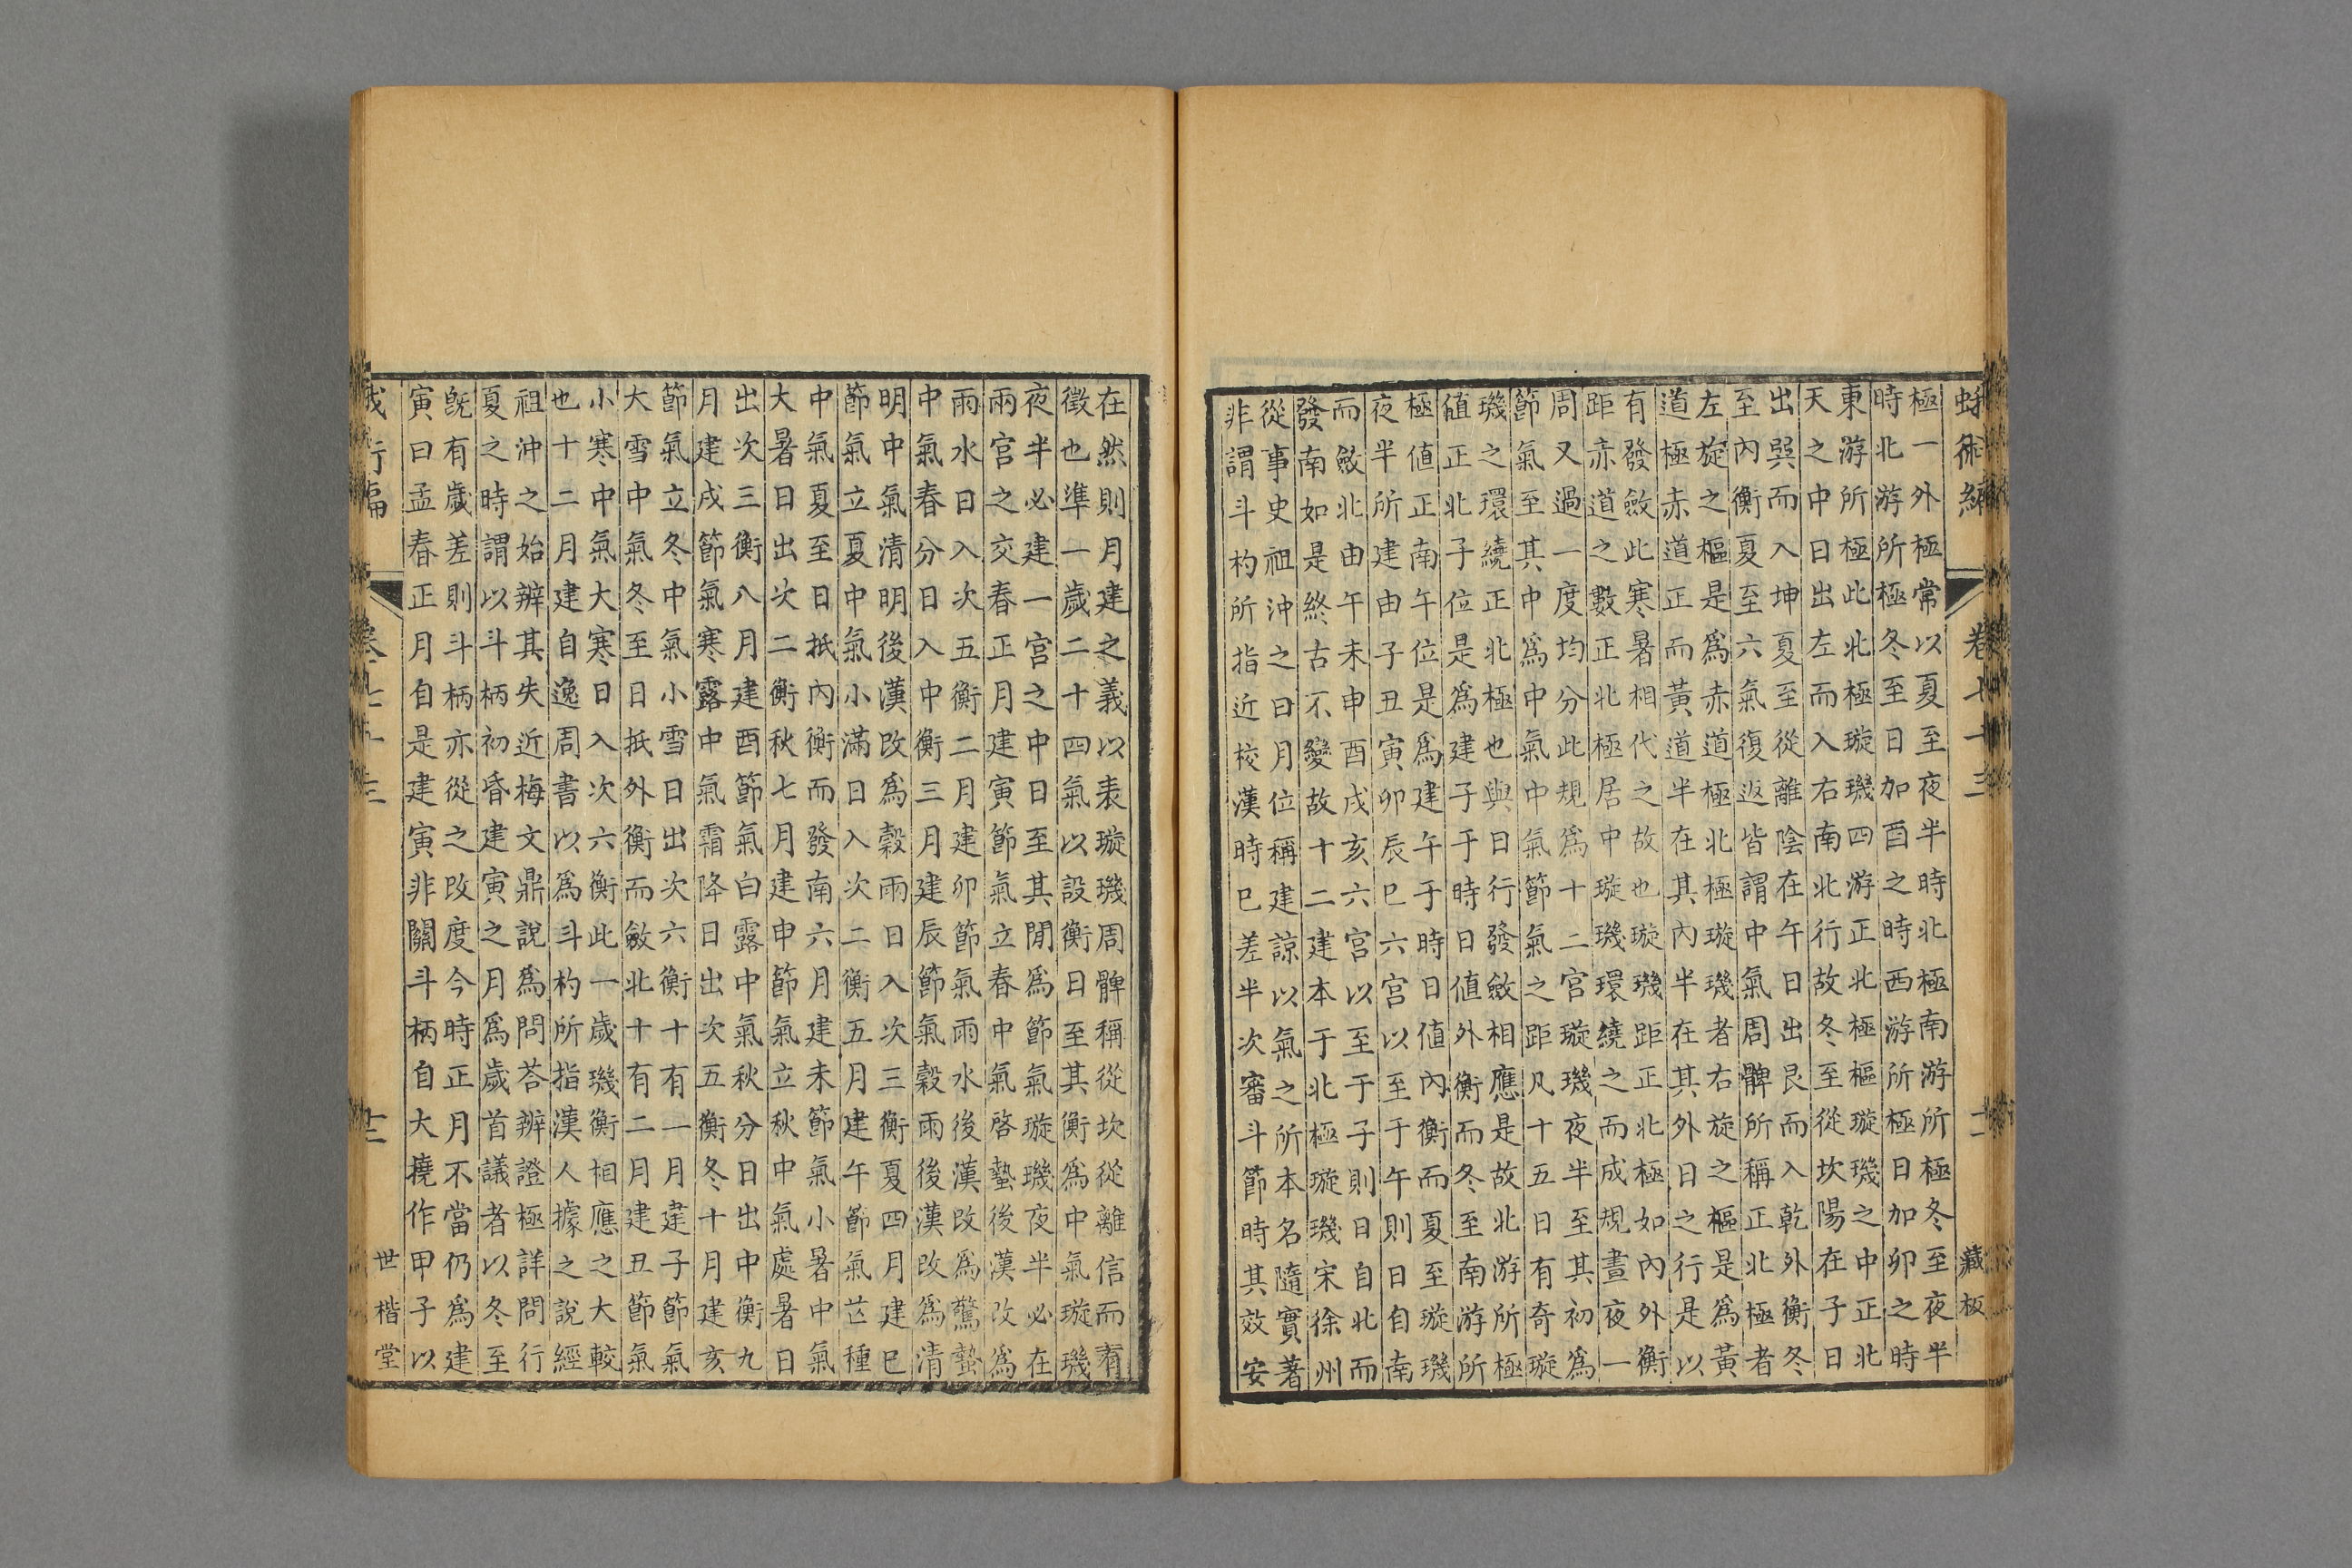 蛾術編 卷七十三 二 藏板
極一外極常以夏至夜半時北極南游所極冬至夜半
時北游所極冬至日加酉之時西游所極日加卯之時
東游所極此北極璇璣四游正北極樞璇璣之中正北
天之中日出左而入右南北行故冬至從坎陽在子日
出巽而入坤夏至從離陰在午日出艮而入乾外衡冬
至內衡夏至六氣復返皆謂中氣周髀所稱正北極者
左旋之樞是爲赤道極北極璇璣者右旋之樞是爲黃
道極赤道正而黃道半在其內半在其外日之行是以
有發斂此寒暑相代之故也璇璣距正北極如內外衡
距赤道之數正北極居中璇璣環繞之而成規晝夜一
周又過一度均分此規爲十二宮璇璣夜半至其初爲
節氣至其中爲中氣中氣節氣之距凡十五日有奇璇
璣之環繞正北極也與日行發斂相應是故北游所極
値正北子位是爲建子于時日値外衡而冬至南游所
極値正南午位是爲建午于時日値內衡而夏至璇璣
夜半所建由子丑寅卯辰巳六宮以至于午則日自南
而斂北由午未申酉戌亥六宮以至于子則日自北而
發南如是終古不變故十二建本于北極璇璣宋徐州
從事史祖沖之曰月位稱建諒以氣之所本名隨實著
非謂斗杓所指近校漢時已差半次審斗節時其效安
在然則月建之義以表璇璣周髀稱從坎從離信而有
徵也準一歲二十四氣以設衡日至其衡爲中氣璇璣
夜半必建一宮之中日至其閒爲節氣璇璣夜半必在
兩宮之交春正月建寅節氣立春中氣啓蟄後漢改爲
雨水日入次五衡二月建卯節氣雨水後漢改爲驚蟄
中氣春分日入中衡三月建辰節氣穀雨後漢改爲清
明中氣清明後漢改爲穀雨日入次三衡夏四月建巳
節氣立夏中氣小滿日入次二衡五月建午節氣芒種
中氣夏至日抵內衡而發南六月建未節氣小暑中氣
大暑日出次二衡秋七月建申節氣立秋中氣處暑日
出次三衡八月建酉節氣白露中氣秋分日出中衡九
月建戌節氣寒露中氣霜降日出次五衡冬十月建亥
節氣立冬中氣小雪日出次六衡十有一月建子節氣
大雪中氣冬至日抵外衡而斂北十有二月建丑節氣
小寒中氣大寒日入次六衡此一歲璣衡相應之大較
也十二月建自逸周書以爲斗杓所指漢人據之說經
祖沖之始辨其失近梅文鼎說爲問荅辨證極詳問行
夏之時謂以斗柄初昏建寅之月爲歲首議者以冬至
旣有歲差則斗柄亦從之改度今時正月不當仍爲建
寅曰孟春正月自是建寅非關斗柄自大撓作甲子以
世楷堂